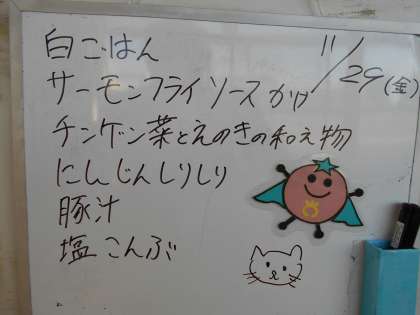 白ごはん
11/29(金)
サーモンフライソースかけ
チンゲン菜とえのきの和え物
にんじんしりしり
豚汁
塩こんぶ